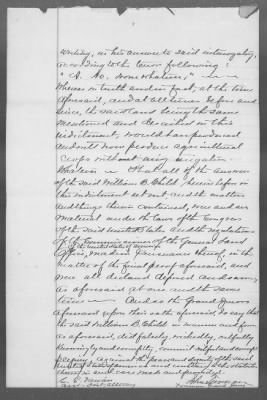 writing, in his answer to said interrogatory,
according to the tenor following:
"A. No. None whatever,"
Whereas in truth and in fact, at the time
aforesaid, and at all times before and
since, the said land being the same
mentioned and described in this
indictment, would have produced
and will now produce agricultural
Crops without any irrigation
whatever. That all of the answers
of the said William B. Child, herein before in
this indictment set out and the matters
and things therein contained, were and are
material under the laws of the Congress
of the said United States and the regulations
of the Commissioner of the General Land
Office, made in pursuance thereof, in the
matter of the final proof aforesaid, and
were all
as aforesaid at one and the same
time. And so the Grand Jurors
aforesaid upon their oath aforesaid do say that
the said William B. Child in manner and form
as aforesaid, did falsely, wickedly, wilfully
knowingly and corruptly, commit wilful and corrupt
perjury against the peace and dignity of the said
United States of America and contrary to the statute
therein and so made and provided.
Asst. Dist. Attorney